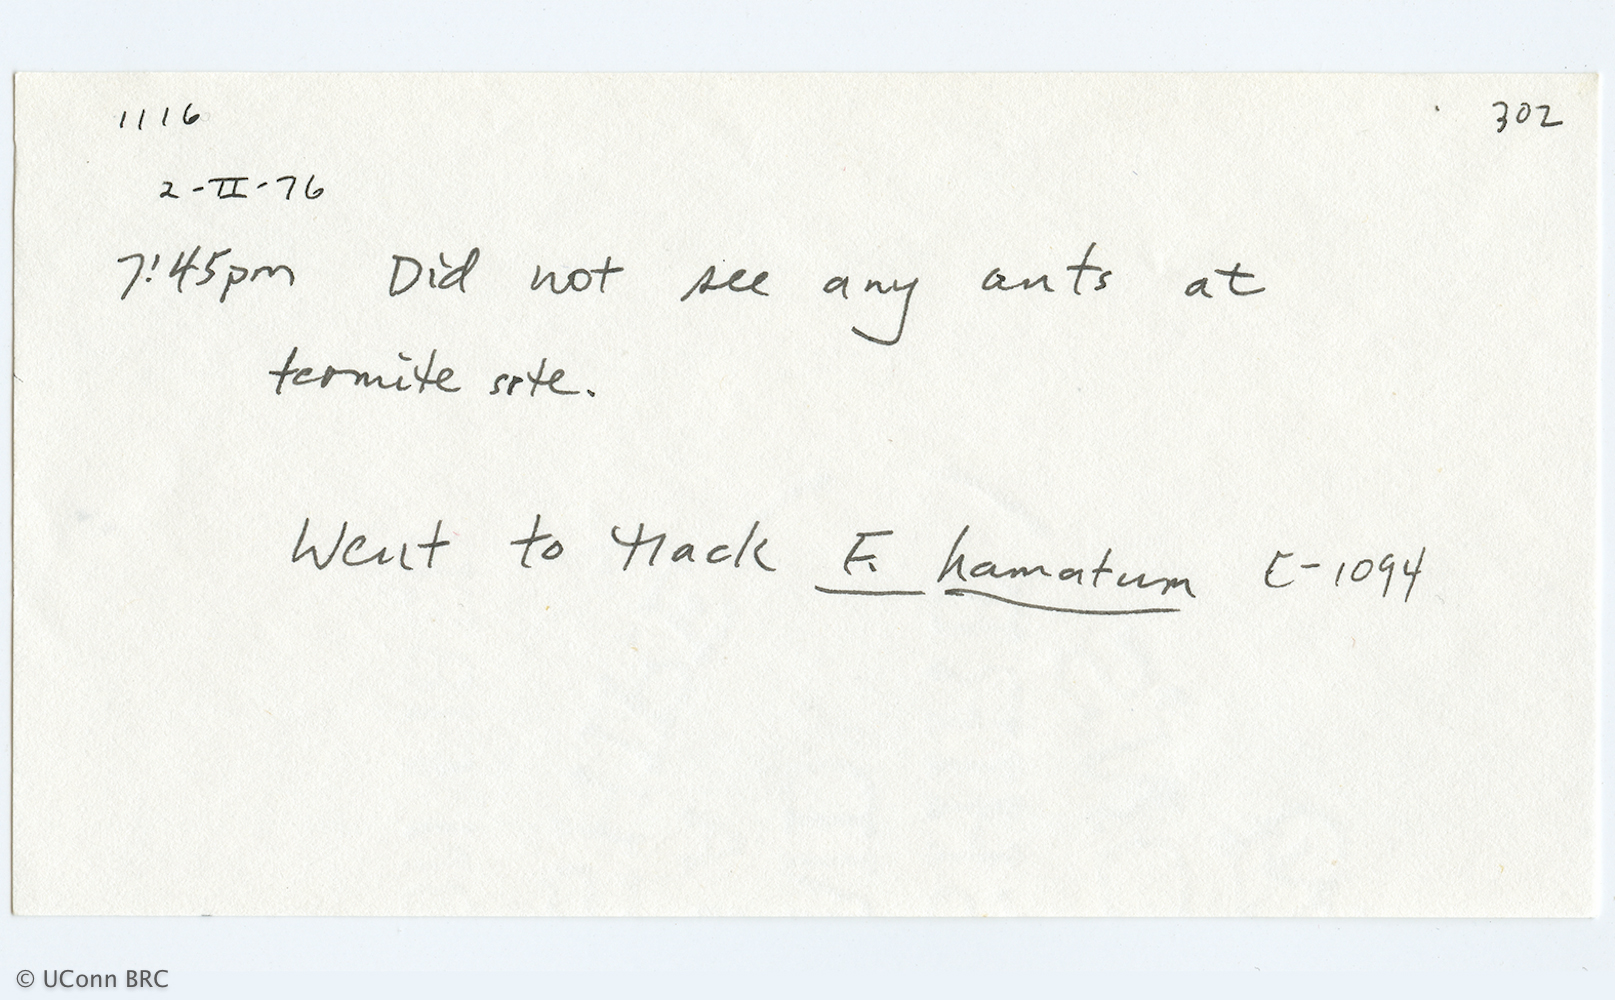 1116 302
2-II-76
7:45pm Did not see any ants at
termite site.
Went to track E. hamatum E-1094
© UConn BRC